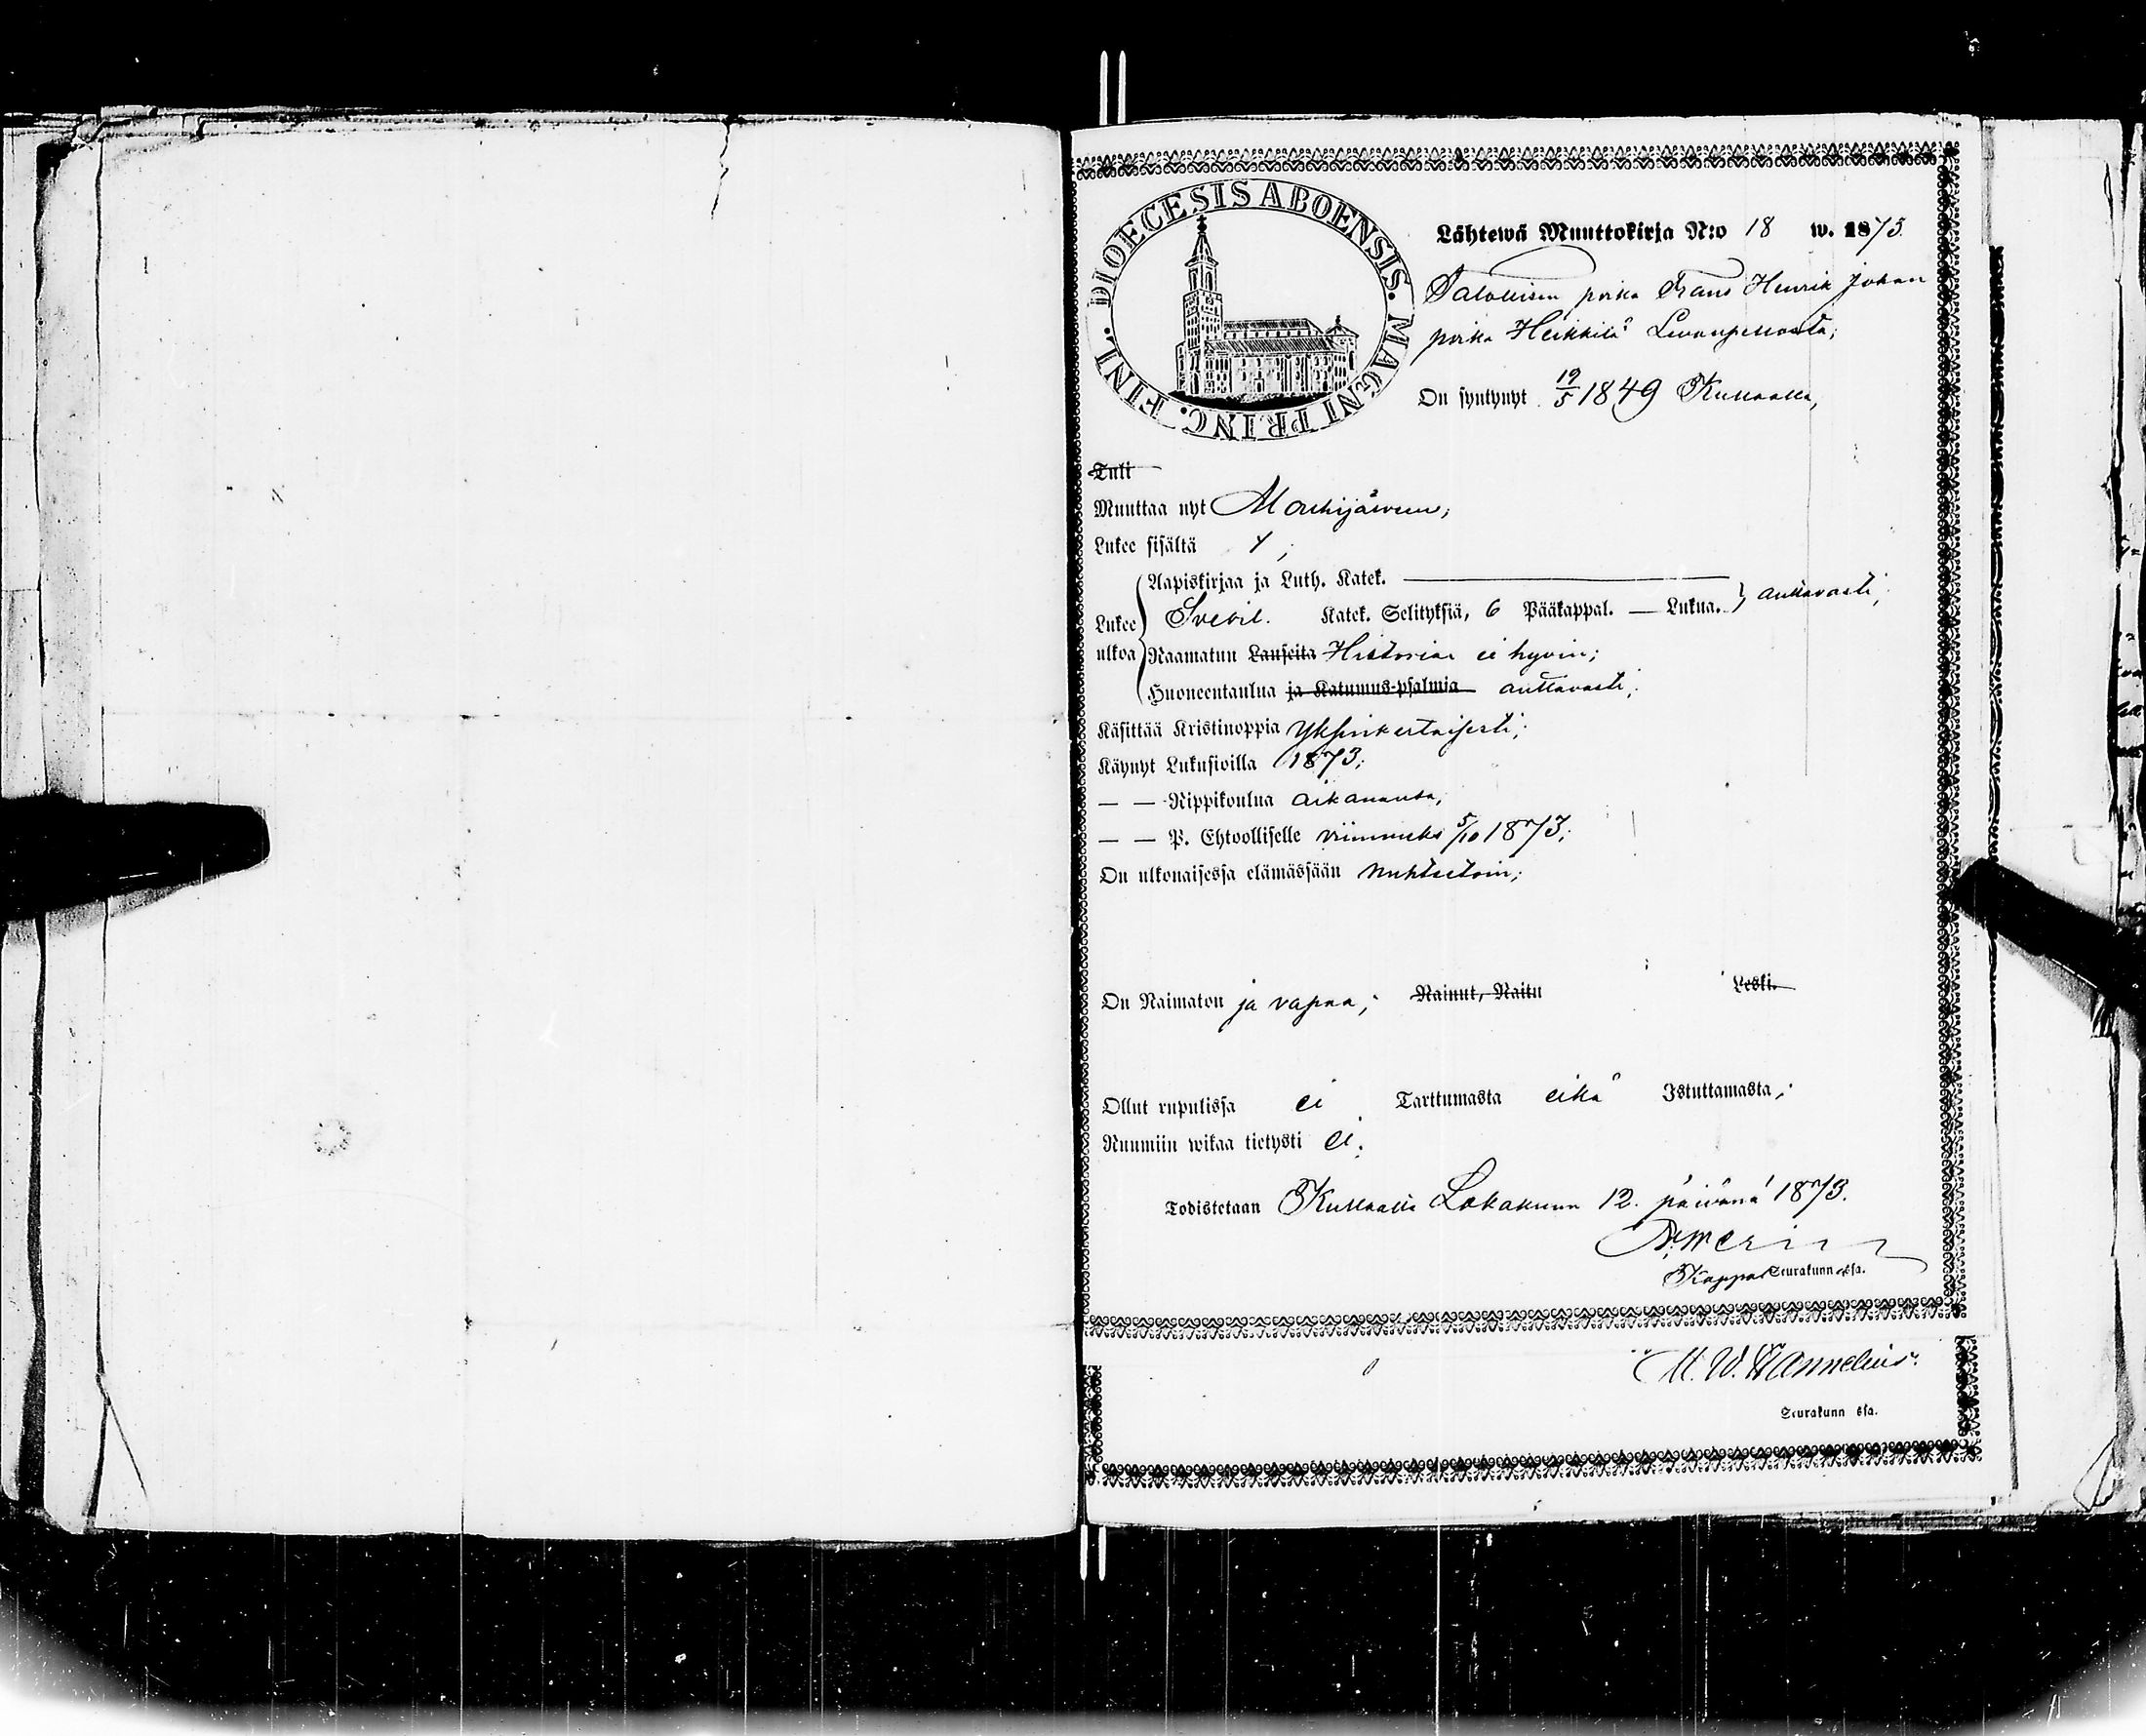 DIOECESIS ABOENSIS. MAGNI PRINC. FINL.
Lähtewä Muuttokirja N:o 18 w. 1873
Talollisen poika Frans Henrik Johan
poika Heikkilä Levanpellosta;
On syntynyt 19/5 1849 Kullaalla,
Tuli
Muuttaa nyt Mouhijärween;
Lukee sisältä Y;
Aapiskirjaa ja Luth. Katek. ———
Lukee Svebil. Katek. Selityksiä, 6 Pääkappal. — Lukua. } auttavasti;
ulkoa Raamatun Lauseita Historiaa ei hyvin;
Huoneentaulua ja Katumus-psalmia auttavasti;
Käsittää Kristinoppia yksinkertaisesti;
Käynyt Lukusioilla 1873;
— — Rippikoulua aikanansa,
— — P. Ehtoolliselle viimmeksi 5/10 1873;
On ulkonaisessa elämässään nuhteetoin;
On Naimaton ja vapaa; Nainut, Naitu Leski.
Ollut rupulissa ei Tarttumasta eikä Istuttamasta;
Ruumiin wikaa tietysti ei.
Todistetaan Kullaalla Lokakuun 12. päivänä 1873.
Kappal Seurakunnassa.
M. W. Wannelius.
Seurakunn ssa.